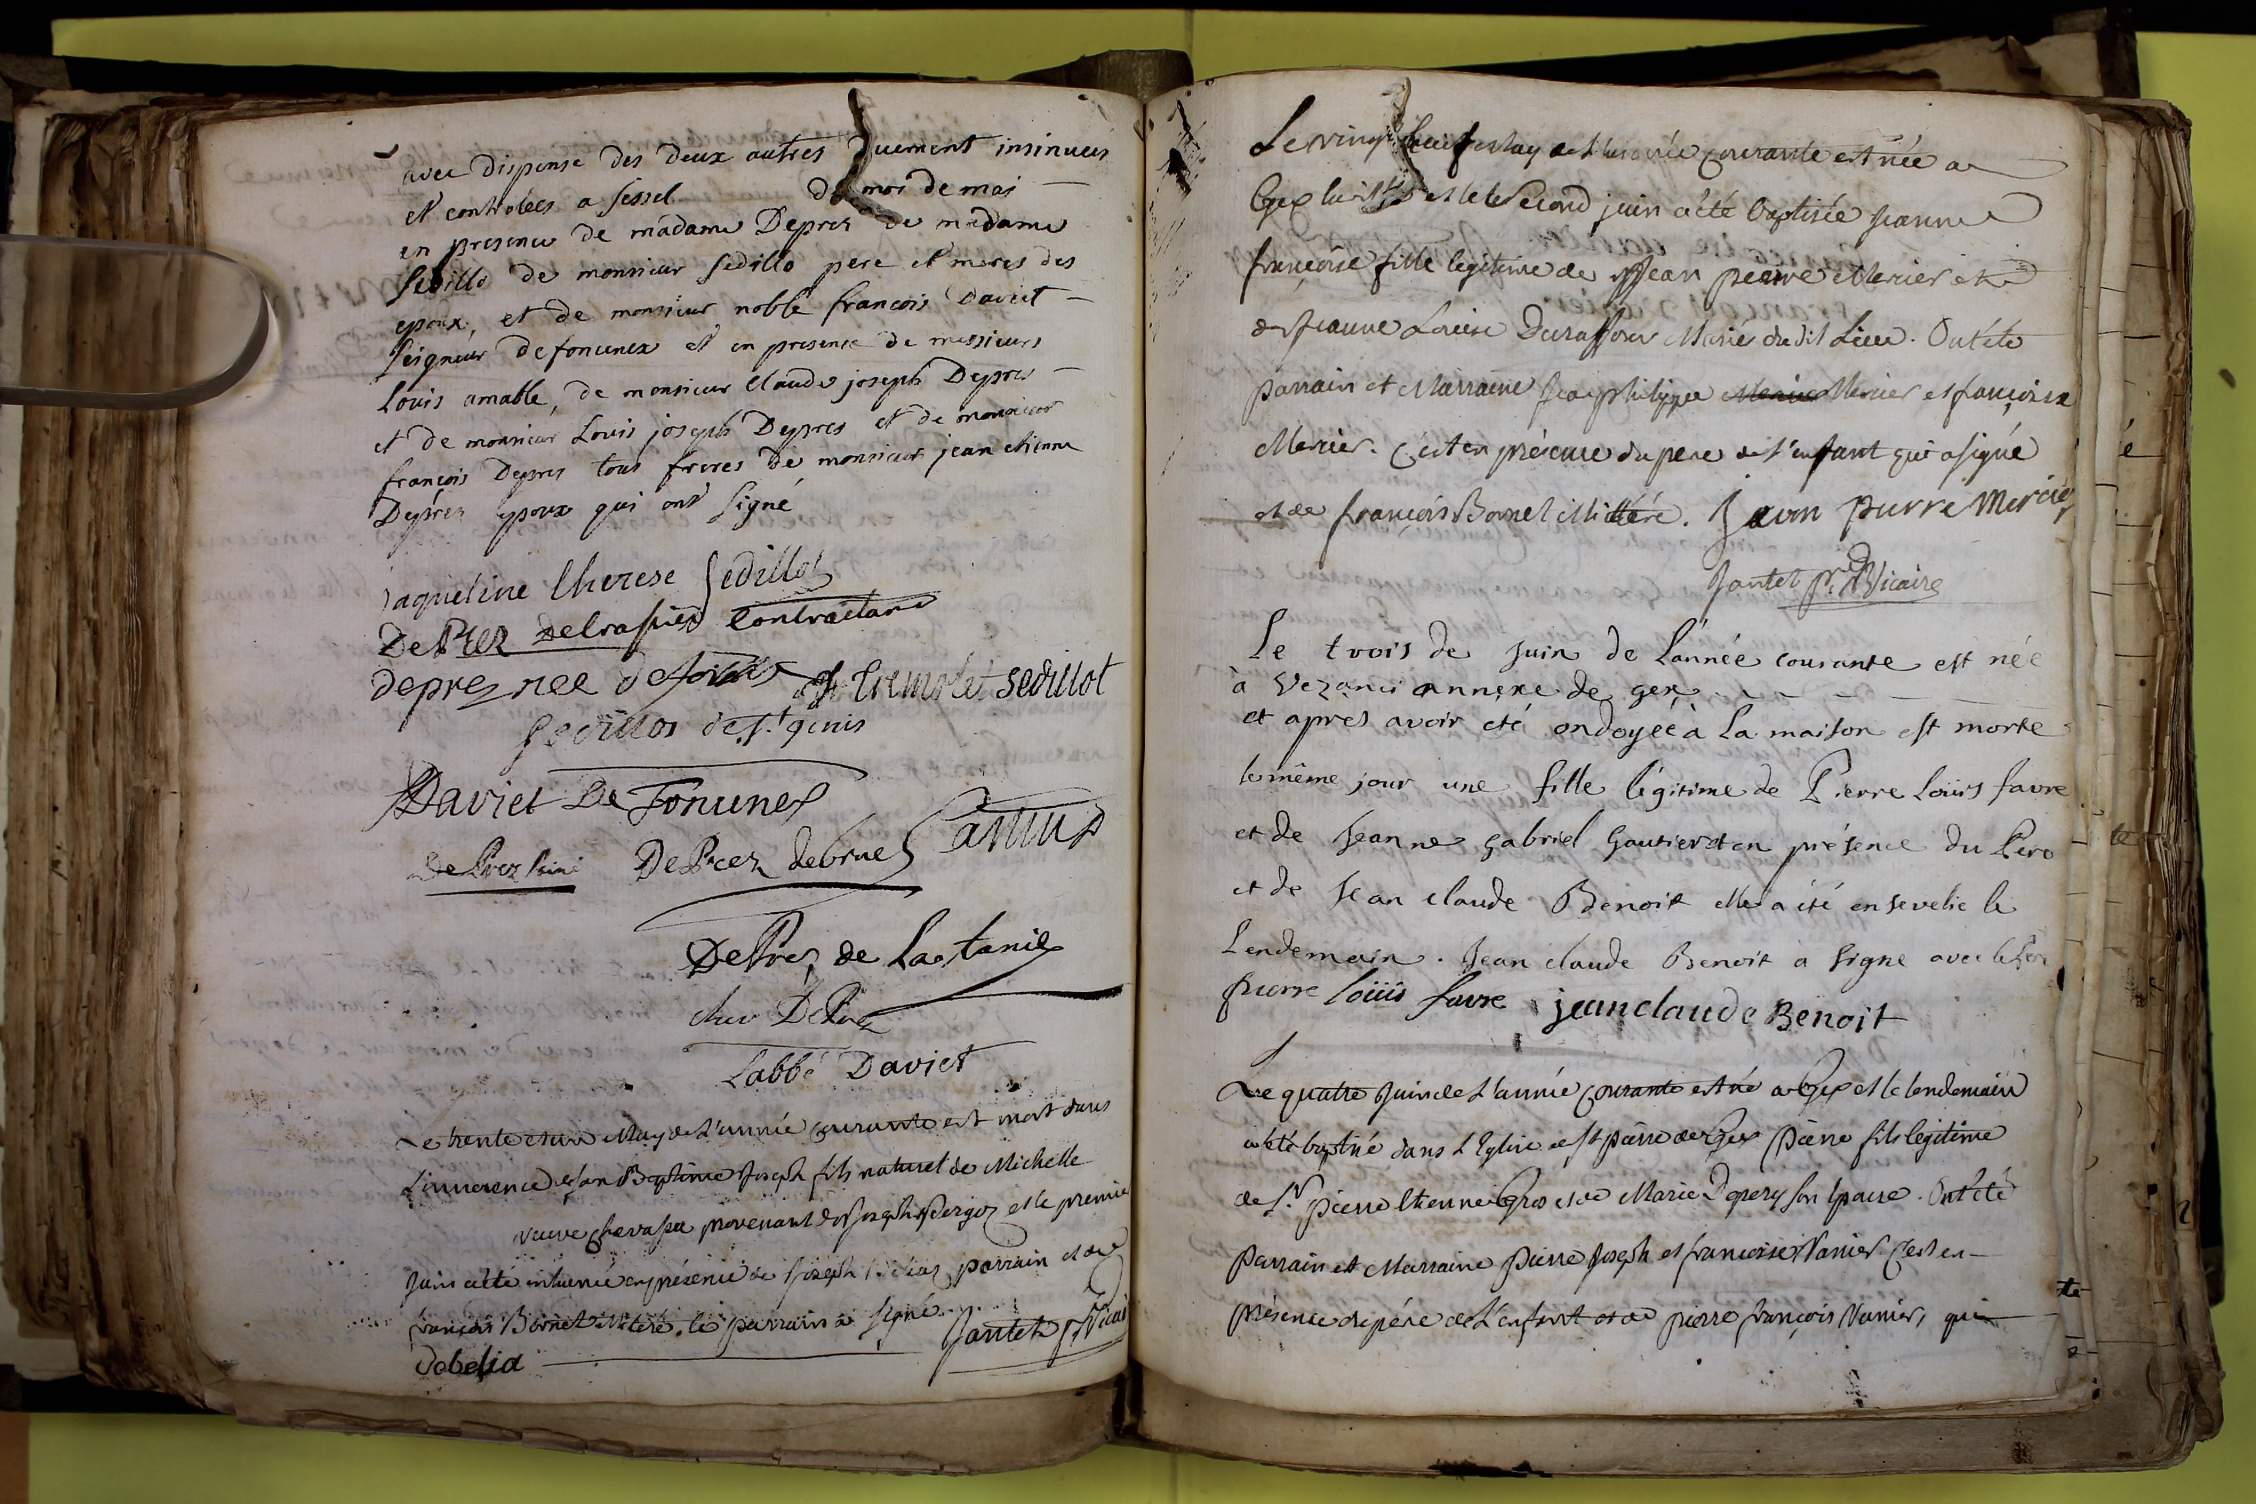 avec dispense des deux autres duement insinuees
et controlees a sessel du mois de mai
en presence de madame Deprez de madame
Sedillo de monsieur Sedillo pere et meres des
epoux, et de monsieur noble francois Daviet
seigneur de fonunex et en presence de messieurs
Louis amable, de monsieur Claude joseph Deprez
et de monsieur Louis joseph Deprez et de monsieur
francois Deprez tous freres de monsieur jean etienne
Deprez epoux qui ont signé
jaqueline therese Sedillot
De Prez Contractant
deprez nee Sedillot
Sedillot de st genis
Daviet De Fonunex
De Prez De Prez
De Prez de La
De Prez
L'abbé Daviet
Le trente et un May de L'année courante est mort dans
L'innocence Jean Baptiste Joseph fils naturel de Michelle
veuve provenant de Joseph et le premier
Juin a été inhumé en présence de Joseph parrain et de
françois Bornet . le parrain a signé.
Jantet p. Vicaire
Debelia
Le vingt huit May de L'année courante est née a
Gex et le second juin a été baptisée Jeanne
françoise fille legitime de Jean pierre Mercier et
de Jeanne Louise Durafour Mariés dudit Lieu. Ont été
parrain et Marraine philippe Mercier et françoise
Mercier. C'est en présence du pere de L'enfant qui a signé
et de françois Bornet . Jean pierre Mercier
Jantet p. Vicaire
Le trois de juin de L'année courante est née
à Vezanci annexe de gex
et apres avoir eté ondoyée à La maison est morte
le même jour une fille légitime de Pierre Loüis favre
et de Jeanne gabriel gautier et en présence du Pere
et de Jean claude Benoit elle a été ensevelie le
Lendemain. Jean claude Benoit a signé avec le Pere
pierre loüis favre jean claude Benoit
Le quatre Juin de L'année courante est né a Gex et le lendemain
a été baptisé dans L'Eglise de st pierre de Gex pierre fils legitime
de Sr. pierre Etienne Gros et de Marie Depery son Epouse. Ont été
Parrain et Marraine pierre Joseph et françoise Vanier C'est en
présence du pére de L'enfant et de pierre françois Vanier, qui